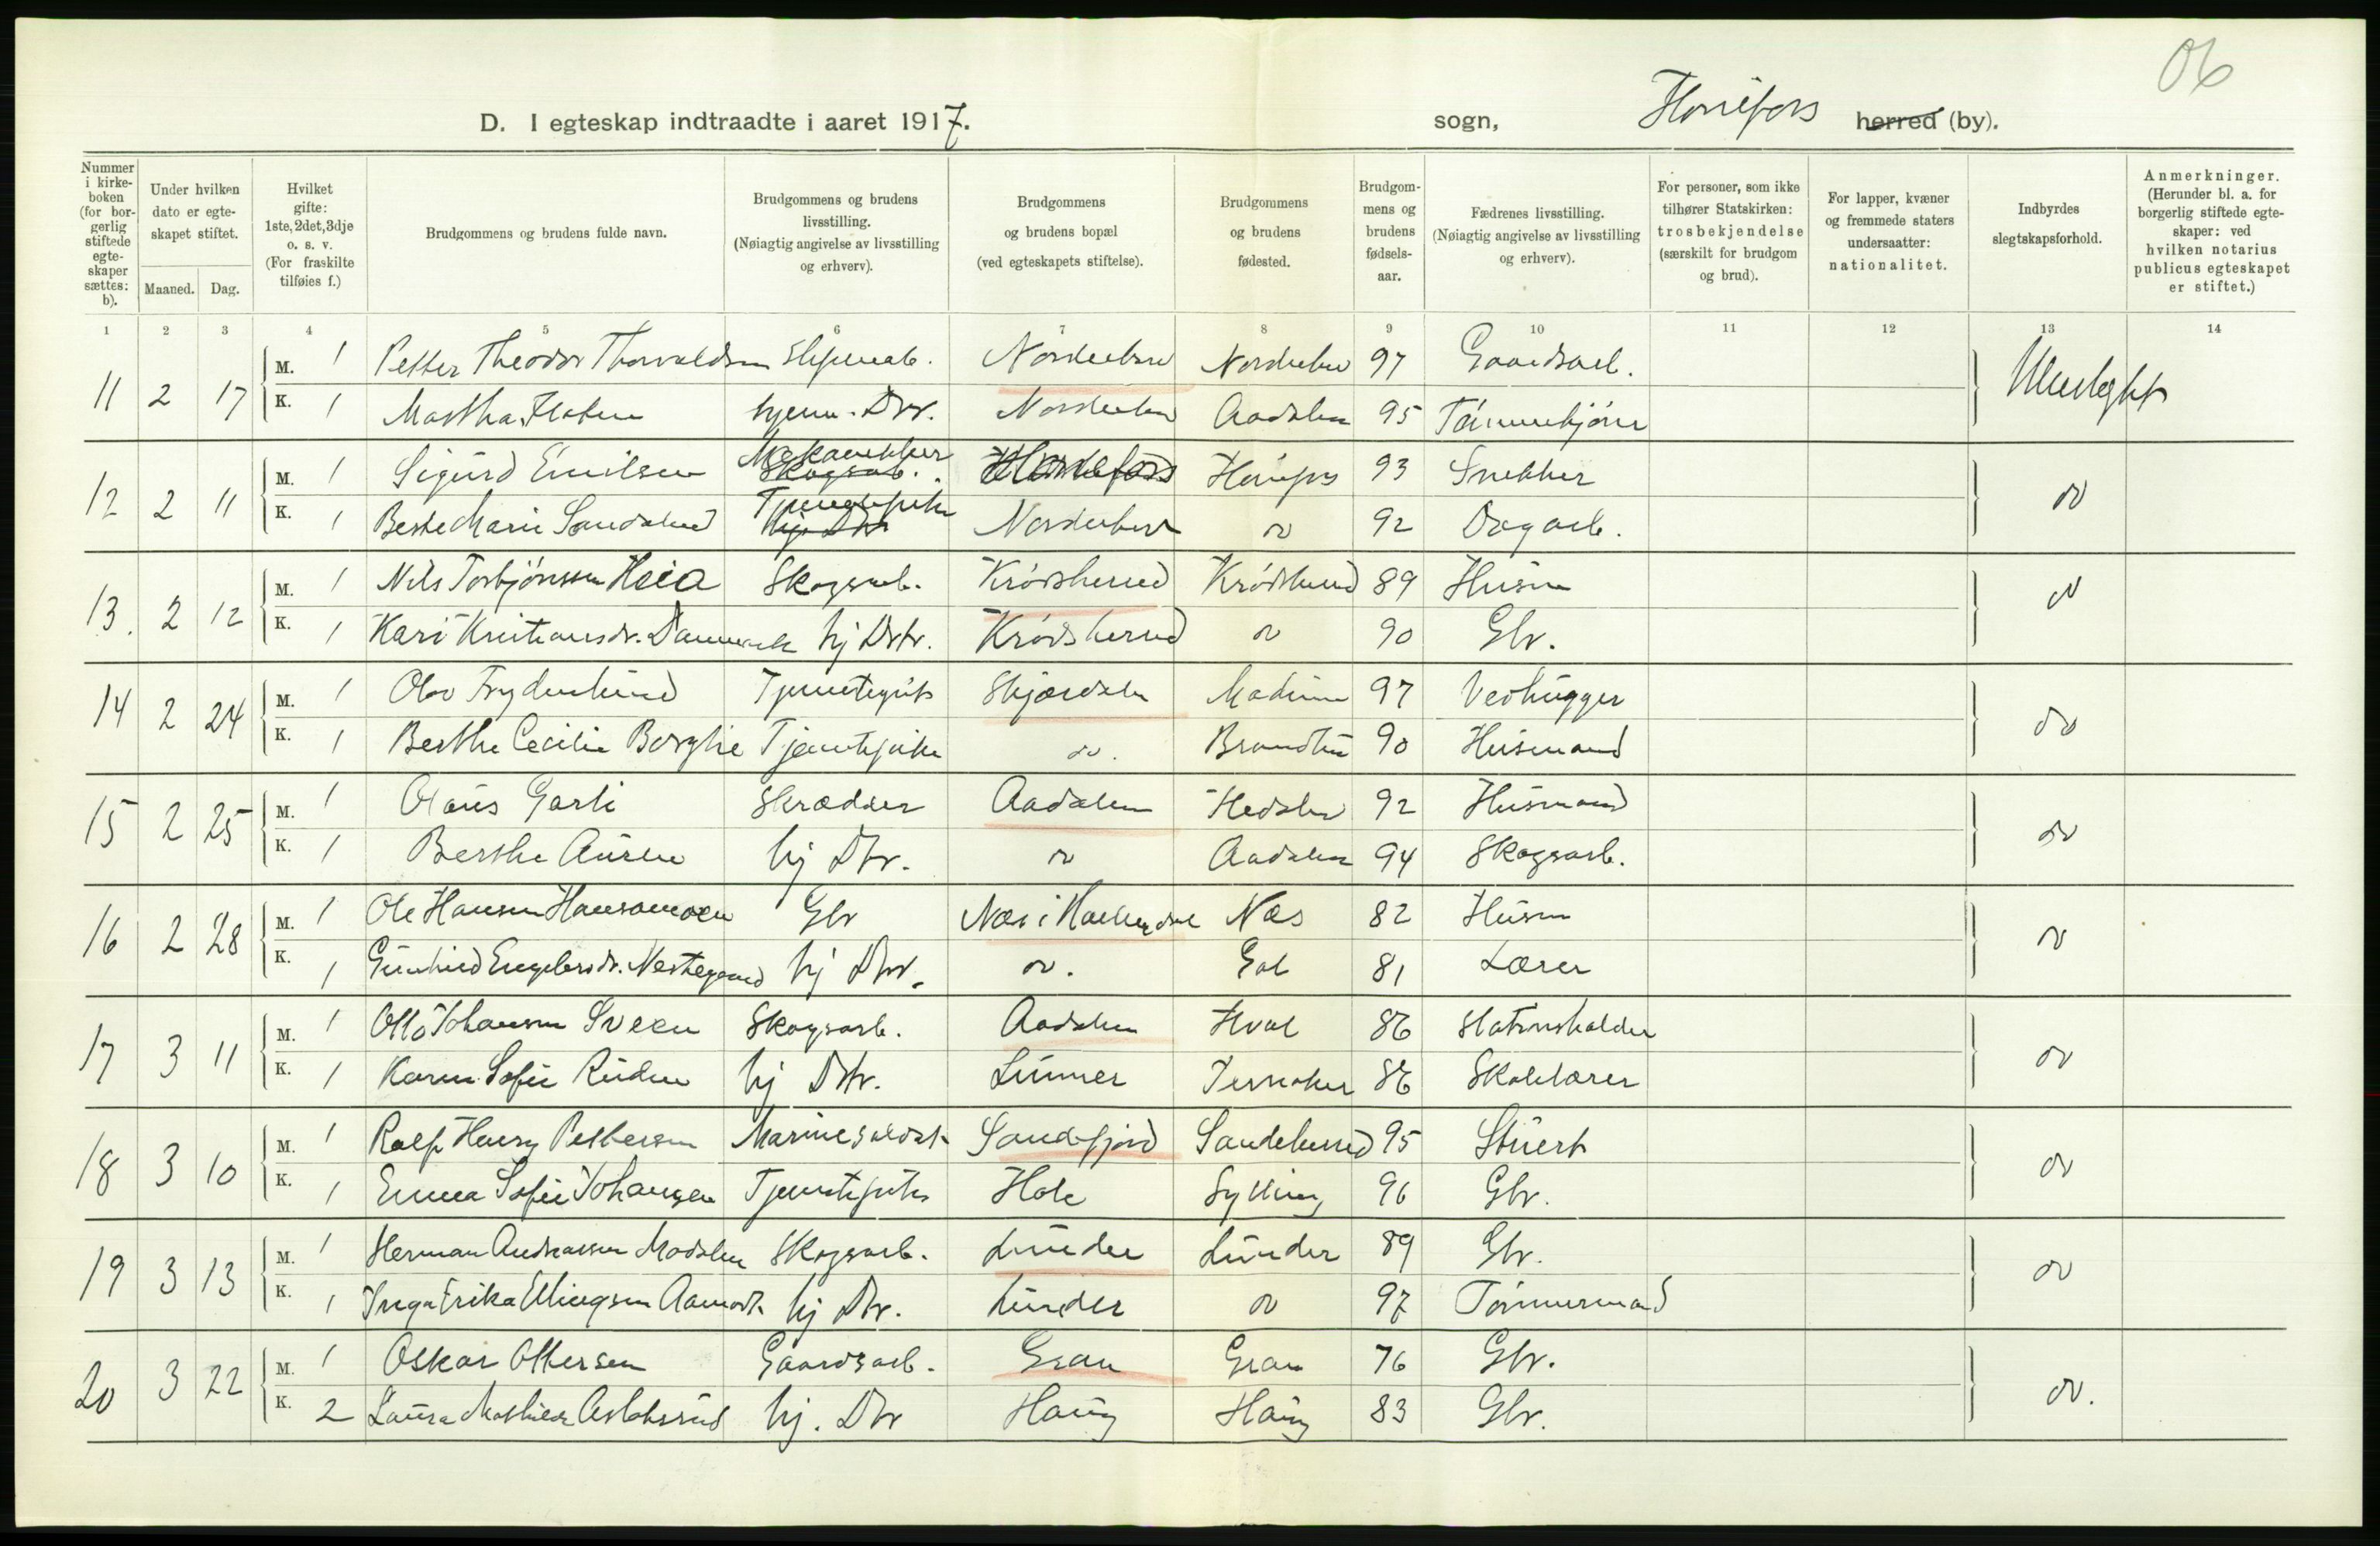 06
D. I egteskap indtraadte i aaret 1917. sogn, Hønefoss herred (by).
Nummer i kirkeboken (for borgerlig stiftede egteskaper sættes: b).
Under hvilken dato er egteskapet stiftet.
Maaned. Dag.
Hvilket gifte: 1ste, 2det, 3dje o. s. v. (For fraskilte tilføies f.)
Brudgommens og brudens fulde navn.
Brudgommens og brudens livsstilling. (Nøiagtig angivelse av livsstilling og erhverv).
Brudgommens og brudens bopæl (ved egteskapets stiftelse).
Brudgommens og brudens fødested.
Brudgommens og brudens fødselsaar.
Fædrenes livsstilling. (Nøiagtig angivelse av livsstilling og erhverv).
For personer, som ikke tilhører Statskirken: trosbekjendelse (særskilt for brudgom og brud).
For lapper, kvæner og fremmede staters undersaatter: nationalitet.
Indbyrdes slegtskapsforhold.
Anmerkninger. (Herunder bl. a. for borgerlig stiftede egteskaper: ved hvilken notarius publicus egteskapet er stiftet.)
1 2 3 4 5 6 7 8 9 10 11 12 13 14
11 2 17 M. 1 Petter Theodor Thorvaldsen Norderhov Norderhov 97 Gaardsarb. Ubeslegtet
K. 1 Martha Flaten hjem. Dtr. Norderhov Aadalen 95 Tømmerkjører
12 2 11 M. 1 Sigurd Emilsen Mekaniker Skogsarb. Hønefoss Hønefos 93 Snekker do
K. 1 Berte Marie Sandaker Tjenestepike hj. Dtr Norderhov do 92 Dagarb.
13. 2 12 M. 1 Nils Torbjørnssen Heia Skogsarb. Krødsherred Krødsherred 89 Husm do
K. 1 Kari Kristiansdr. Danmark hj Dtr. Krødsherred do 90 Gbr.
14 2 24 M. 1 Olav Frydenlund Tjenestegut Skjærdalen Modum 97 Vedhugger do
K. 1 Berthe Cecilie Borglie Tjenestepike do. Brandbu 90 Husmand
15 2 25 M. 1 Olaus Garli Skrædder Aadalen Hedalen 92 Husmand do
K. 1 Berthe Auren hj Dtr. do Aadalen 94 Skogsarb.
16 2 28 M. 1 Ole Hansen Hansamoen Gbr Næs i Hallingdal Næs 82 Husm do
K. 1 Gunhild Engebrsdr. Nestegaard hj Dtr. do. Gol 81 Lærer
17 3 11 M. 1 Otto Johansen Sveen Skogsarb. Aadalen Hval 86 Stationsholder do
K. 1 Karen Sofie Ruden hj Dtr. Lunner Jevnaker 86 Skolelærer
18 3 10 M. 1 Rolf Henry Pettersen Marinesoldat Sandefjord Sandeherred 95 Stuert do
K. 1 Emma Sofie Johansen Tjenestepike Hole Sylling 96 Gbr.
19 3 13 M. 1 Herman Andreassen Modalen Skogsarb. Lunder Lunder 89 Gbr. do
K. 1 Inga Erika Ellingsen Aamodt hj Dtr. Lunder do 97 Tømmermand
20 3 22 M. 1 Oskar Ottersen Gaardsarb. Gran Gran 76 Gbr. do.
K. 2 Laura Mathilde Aslaksrud hj. Dtr Haug Haug 83 Gbr.